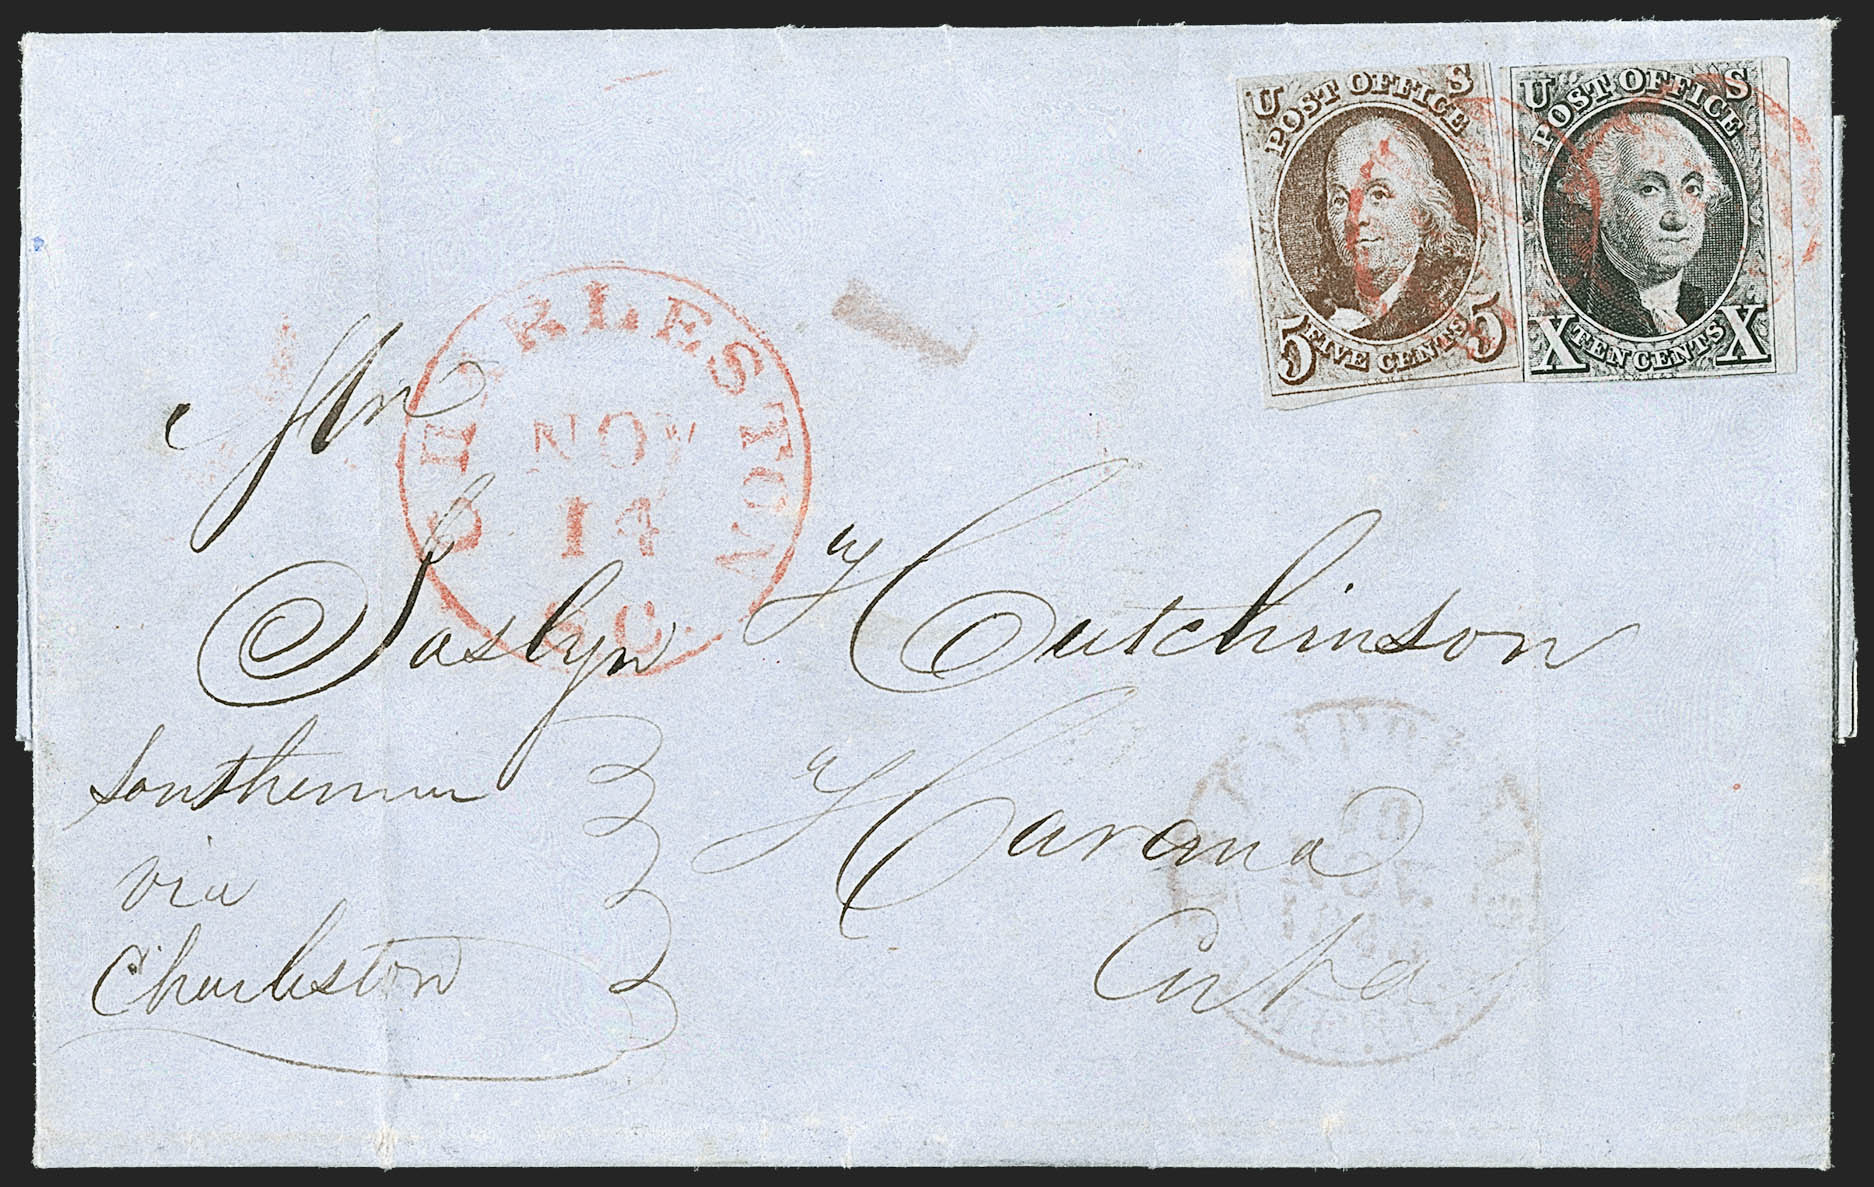 U S
POST OFFICE
5 FIVE CENTS 5
U S
POST OFFICE
X TEN CENTS X
CHARLESTON
NOV
14
SC.
Mr
Joslyn Hutchinson
Southerner
via
Charleston
Havana
Cuba